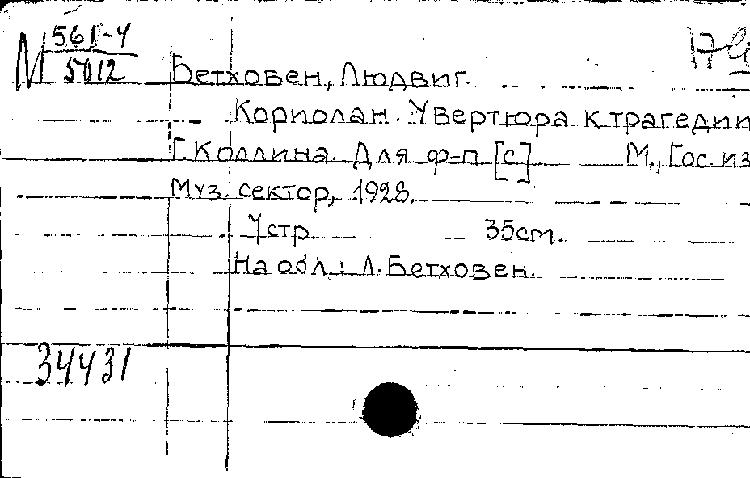 М 561-4
5012
Бетховен, Людвиг.
Кориолан. Увертюра к трагедии
Г. Коллина. Для ф-п [с] М., Гос. из
Муз. сектор, 1928.
7 стр 35 cm.
На обл.: Л. Бетховен.
34431